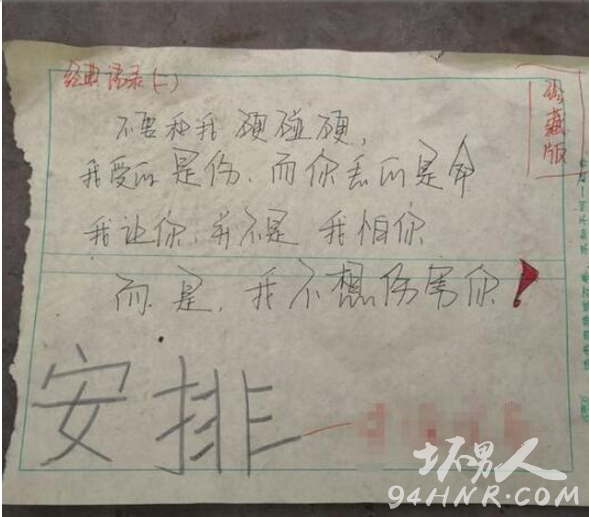 经典语录(二)
珍藏版
不要和我硬碰硬,
我受的是伤.而你丢的是命
我让你.并不是我怕你
而是,我不想伤害你!
安排
坏男人
94HNR.COM